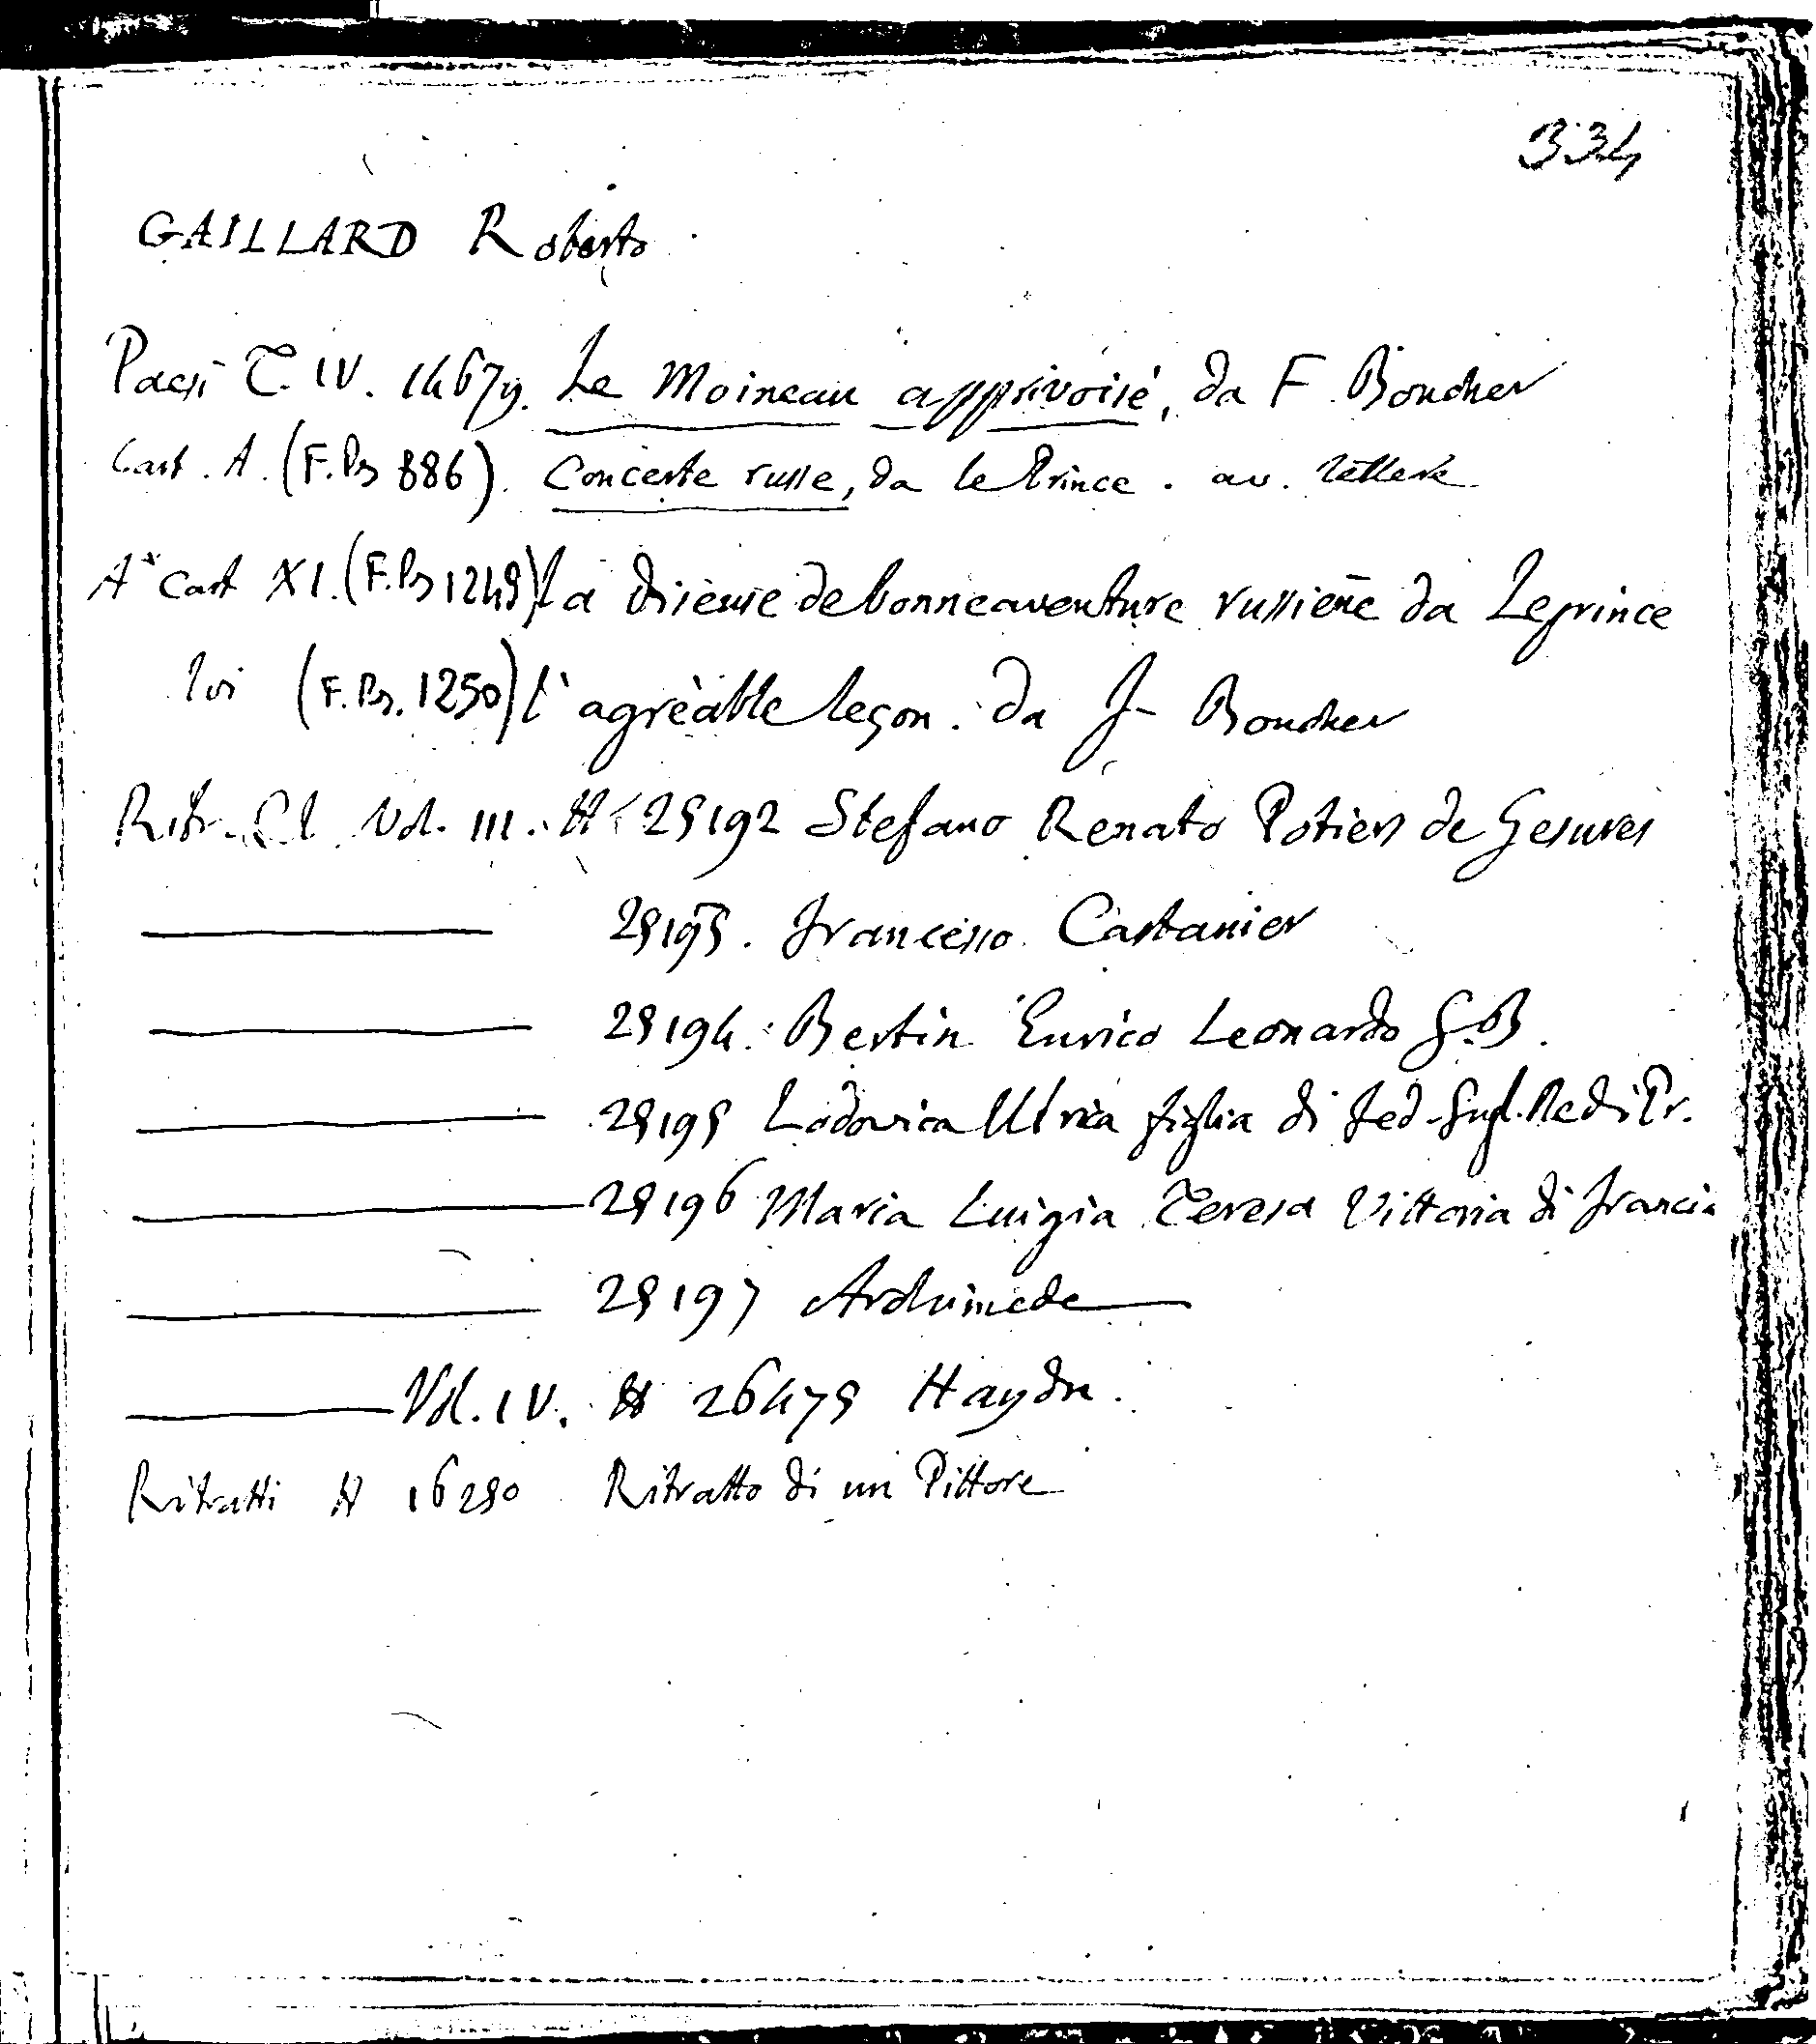 334
GAILLARD Roberto
Paesi T. IV. 14679. Le Moineau apprivoisé, da F. Boucher
Cart. A. (F.Ps 886). Concerte russe, da le Prince. av. lettere
A* Cart XI. (F.Ps 1249) la diseuse de bonneaventure russiene da Leprince
Ivi (F.Ps. 1250) l'agrèable leçon. da F Boucher
Ritr. Cl Vol. III. N 25192 Stefano Renato Potiers de Gesures
25193. Francesco Castanier
25194. Bertin Enrico Leonardo G.B.
25195 Lodovica Ulrica figlia di Fed. Gugl. Re di Pr.
25196 Maria Luigia Teresa Vittoria di Francia
25197 Archimede
Vol. IV. N 26475 Haydn.
Ritratti N 16250 Ritratto di un Pittore